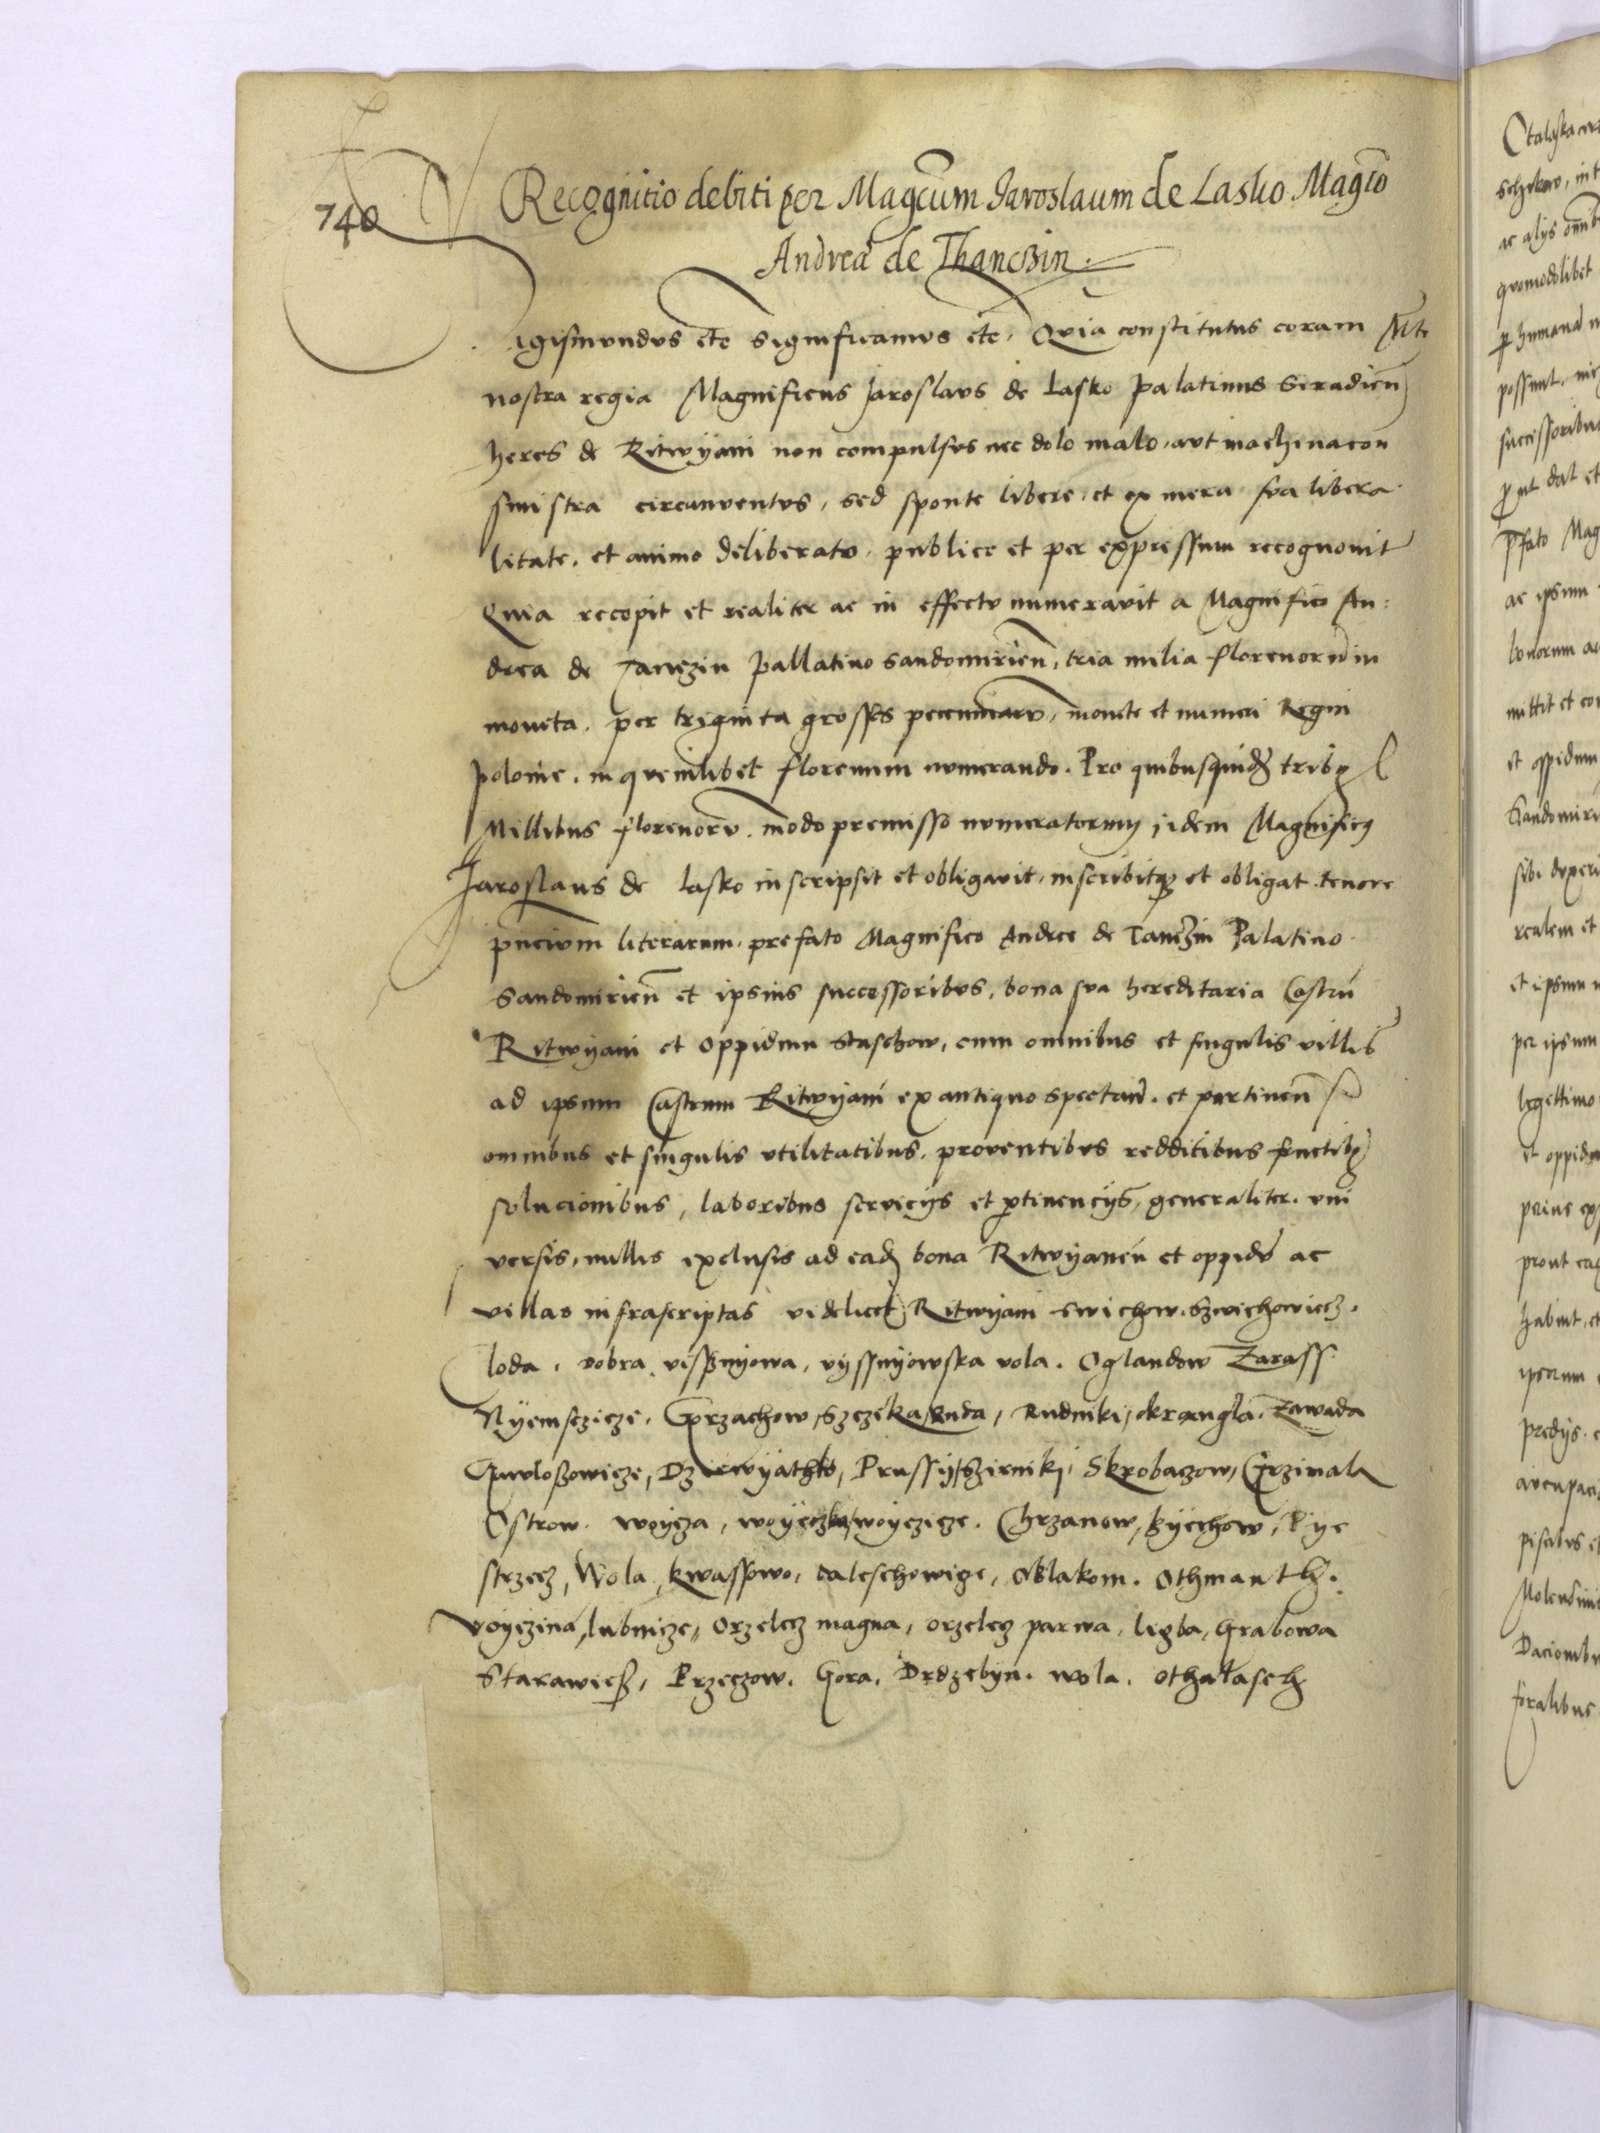 740
Recognitio debiti per Magcum Iaroslaum de Lasko Magco
Andreae de Thanczin
Sigismundus etc significamus etc. Quia constitutus coram Mte
nostra regia Magnificus Jaroslaus de Lasko palatinus Siradien
heres de Ritwyani non compulsus nec dolo malo, aut machinacon
sinistra circumventus, sed sponte libere, et ex mera sua libera
litate, et animo deliberato, publice et per expressum recognovit
Quia recepit et realiter ac in effectu numeravit a Magnifico An:
drea de Tanczin pallatino Sandomirien, tria milia florenoru in
moneta, per triginta grossos pecuniaru, monete et numeri Regni
polonie, in quemlibet florenum numerando. Pro quibusquid tribus
Millibus florenoru, modo premisso numeratorum, idem Magnificus
Jaroslaus de Lasko inscripsit et obligavit, inscribitq et obligat tenore
pncium literarum, prefato Magnifico Andree de Tanczin Palatino
Sandomirien et ipsius successoribus, bona sua hereditaria Castru
Ritwyani et Oppidum Staschow, cum omnibus et singulis villis
ad ipsum Castrum Ritwyani ex antiquo spectan. et pertinen
omnibus et singulis utilitatibus, proventibus redditibus fructibus
solucionibus, laboribus serviciis et ptinenciis, generaliter. uni
versis, nullis exclusis ad ead bona Ritwyanen et oppidu ac
villas infrascriptas videlicet Ritwyani Swichow. Szwichowiecz.
loda, dobra, vissnyowa, vyssnyowska vola. Oglandow Zarass
Nyemsczicze, Grzachow, Szczeka, Ruda, Rudniki, okrangla. Zawada
Gawloszowicze, Dzierwyathko, Prussy, Szirniki, Skrobaczow, Grzimala
Ostrow. woycza, woyeczka, woyczicze. Chrzanow, Zyechow, Pye
strzecz, Wola, kwassowo, daleschowize, Oblakom. Othmanth.
voyczina, lubnicze, Orzelecz magna, orzelecz parva, ligba, Grabowa
Starawiess, Przeczow. Gora, Drdzebyn. wola. Othalasch